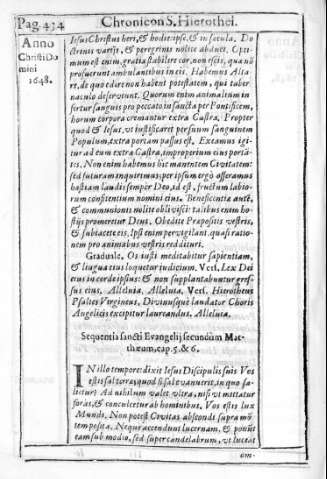 Pag. 434
Chronicon S. Hierothei.
Anno
Christi Do
mini
1648.
Iesus Christus heri, & hodie: ipse, & in sæcula. Do
ctrinis varijs, & peregrinis nolite abduci. Opti-
mum est enim, gratia stabilire cor, non escis, quæ nõ
profuerunt ambulantibus in eis. Habemus Alta-
re, de quo edere non habent potestatem, qui taber-
naculo deserviunt. Quorum enim animalium in
fertur sanguis pro peccato in sancta per Pontificem,
horum corpora cremantur extra Castra. Propter
quod & Iesus, ut sanctificaret per suum sanguinem
Populum, extra portam passus est. Exeamus igi-
tur ad eum extra Castra, improperium eius portã-
tes. Non enim habemus hic manentem Civitatem:
sed futuram inquirimus: per ipsum ergò offeramus
hostiam laudis semper Deo, id est, fructum labio-
rum confitentium nomini eius. Beneficentiæ autẽ,
& communionis nolite oblivisci: talibus enim ho-
stijs promeretur Deus. Obedite Præpositis vestris,
& subiacete eis. Ipsi enim pervigilant. quasi ratio-
nem pro animabus vestris reddituri.
Graduale. Os iusti meditabitur sapientiam,
& lingua eius loquetur iudicium. Vers. Lex Dei
eius in corde ipsius: & non supplantabuntur gres-
sus eius. Alleluia, Alleluia. Vers. Hierotheus
Psaltes Virgineus, Divinusque laudator Choris
Angelicis excipitur laureandus. Alleluia.
Sequentia sancti Evangelij secundùm Mat-
thæum, cap. 5. & 6.
IN illo tempore: dixit Iesus Discipulis suis Vos
estis sal terræ, quod si sal evanuerit, in quo sa-
lietur? Ad nihilum valet ultra, nisi ut mittatur
foras, & conculcetur ab hominibus. Vos estis lux
Mundi. Non potest Civitas abscondi supra mõ
tem posita. Neque accendunt lucernam, & ponũt
eam sub modio, sed super candelabrum, ut luceat
om-